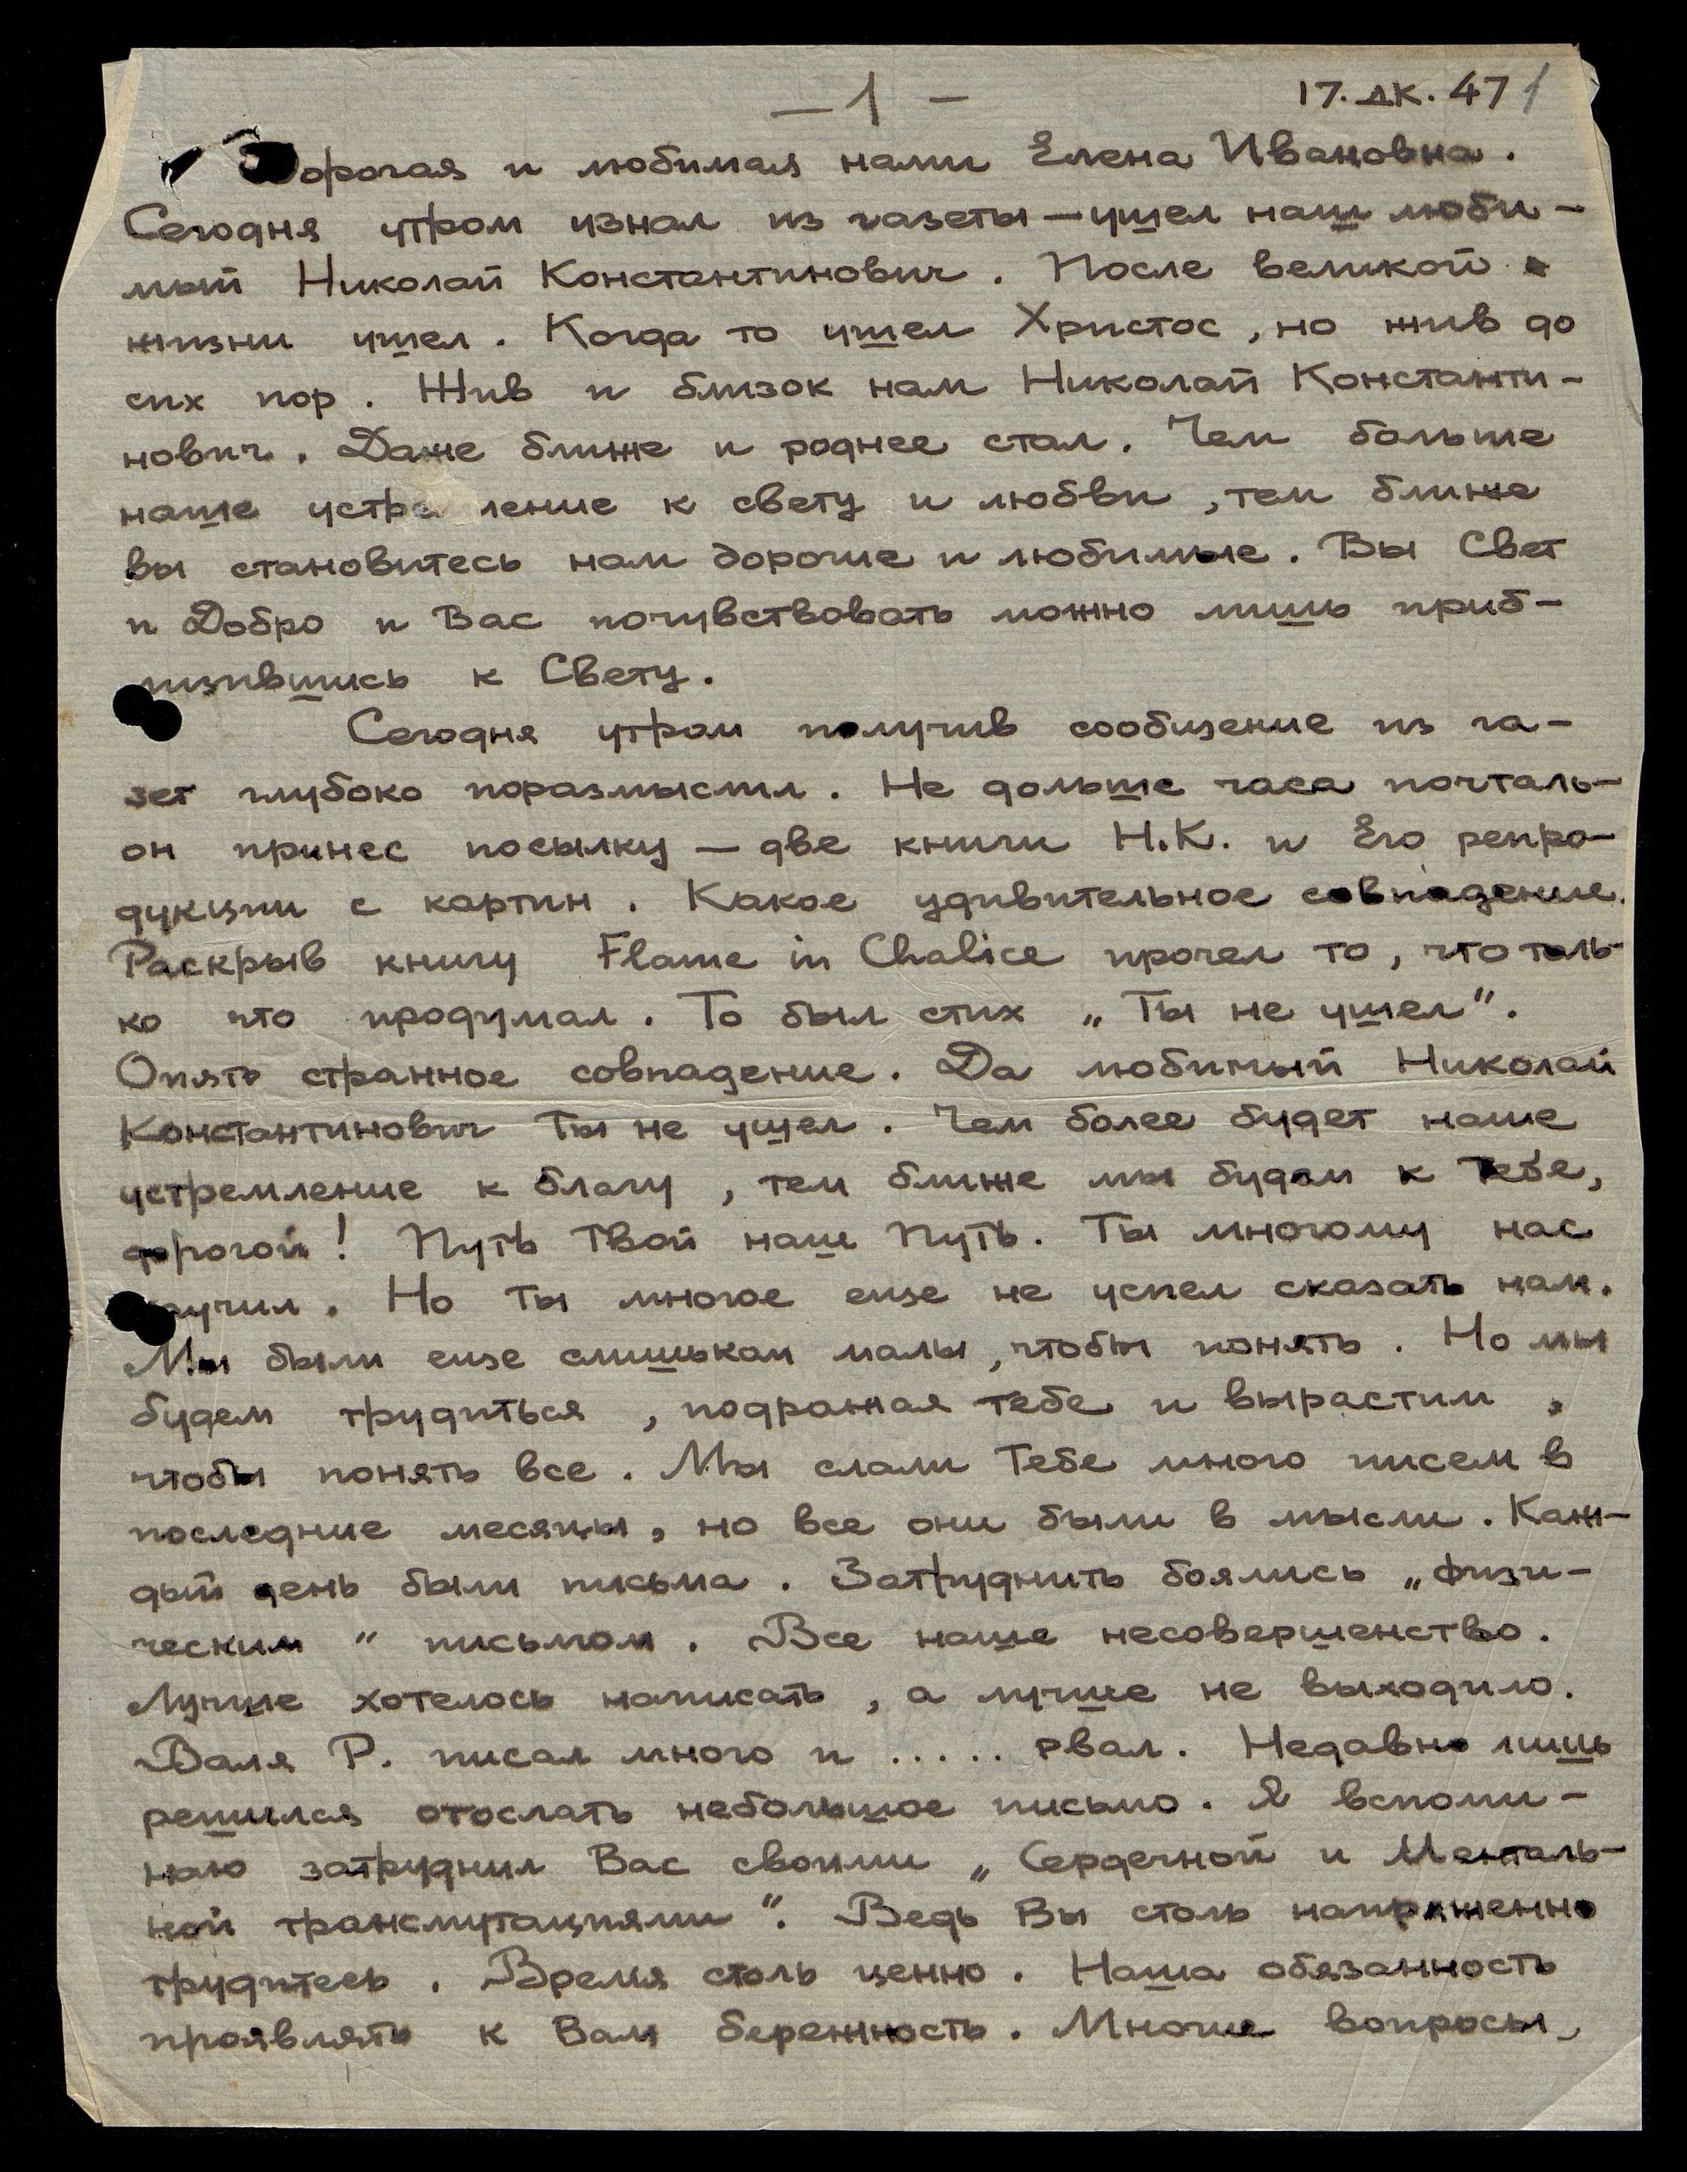 — 1 —
17. дк. 47 1
Дорогая и любимая нами Елена Ивановна.
Сегодня утром узнал из газеты — ушел наш люби-
мый Николай Константинович. После великой
жизни ушел. Когда то ушел Христос, но жив до
сих пор. Жив и близок нам Николай Константи-
нович. Даже ближе и роднее стал. Чем больше
наше устремление к свету и любви, тем ближе
вы становитесь нам дороже и любимые. Вы Свет
и Добро и Вас почувствовать можно лишь приб-
лизившись к Свету.
Сегодня утром получив сообщение из га-
зет глубоко поразмыслил. Не дольше часа почталь-
он принес посылку — две книги Н.К. и Его репро-
дукции с картин. Какое удивительное совпадение.
Раскрыв книгу Flame in Chalice прочел то, что толь-
ко что продумал. То был стих „Ты не ушел".
Опять странное совпадение. Да любимый Николай
Константинович Ты не ушел. Чем более будет наше
устремление к благу, тем ближе мы будем к Тебе,
дорогой! Путь Твой наш Путь. Ты многому нас
научил. Но Ты многое еще не успел сказать нам.
Мы были еще слишьком малы, чтобы понять. Но мы
будем трудиться, подражая тебе и вырастим,
чтобы понять все. Мы слали Тебе много писем в
последние месяцы, но все они были в мысли. Каж-
дый день были письма. Затруднить боялись „физи-
ческим" письмом. Все наше несовершенство.
Лучше хотелось написать, а лучше не выходило.
Валя Р. писал много и ..... рвал. Недавно лишь
решился отослать небольшое письмо. Я вспоми-
наю затруднил Вас своими „Сердечной и Менталь-
ной трансмутациями". Ведь Вы столь напряженно
трудитесь. Время столь ценно. Наша обязанность
проявлять к Вам бережность. Многие вопросы,